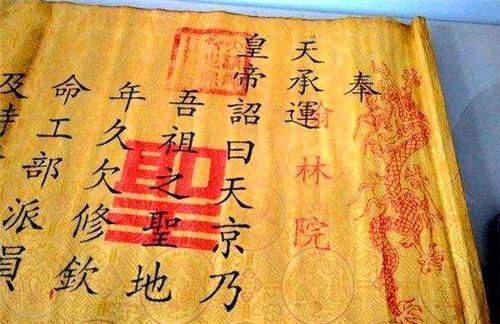 奉
翰林院
天承運
皇帝詔曰天京乃
吾祖之聖地
年久欠修欽
命工部派員
及
聖